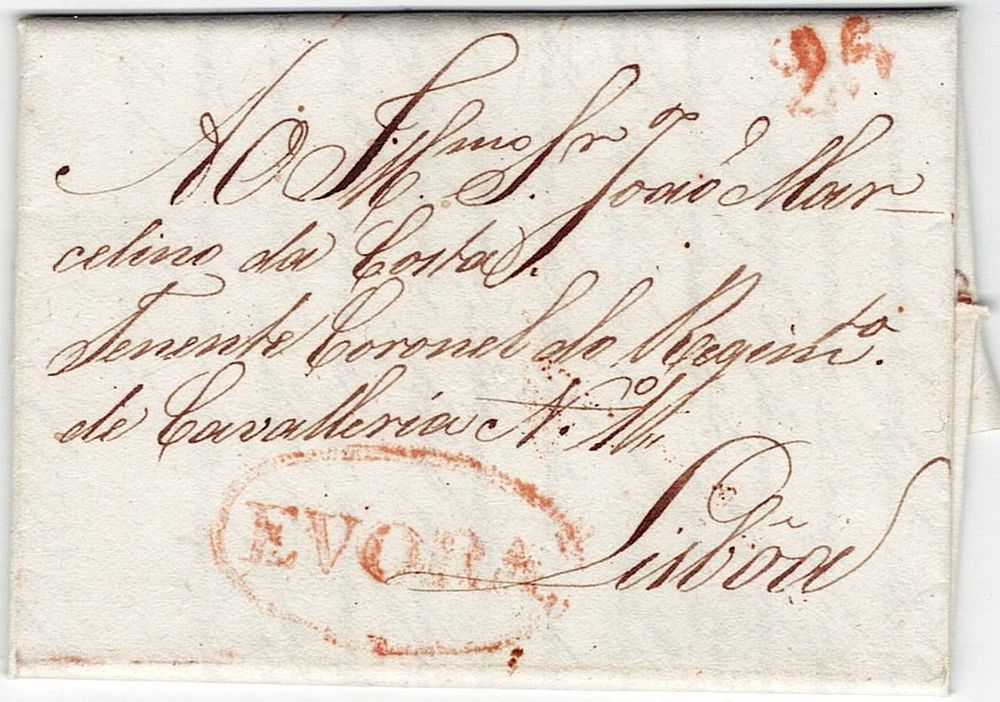 25
Ao Illmo Snr João Mar-
celino da Costa.
Tenente Coronel do Regimto.
de Cavalleria N.º
EVORA
Lisbôa